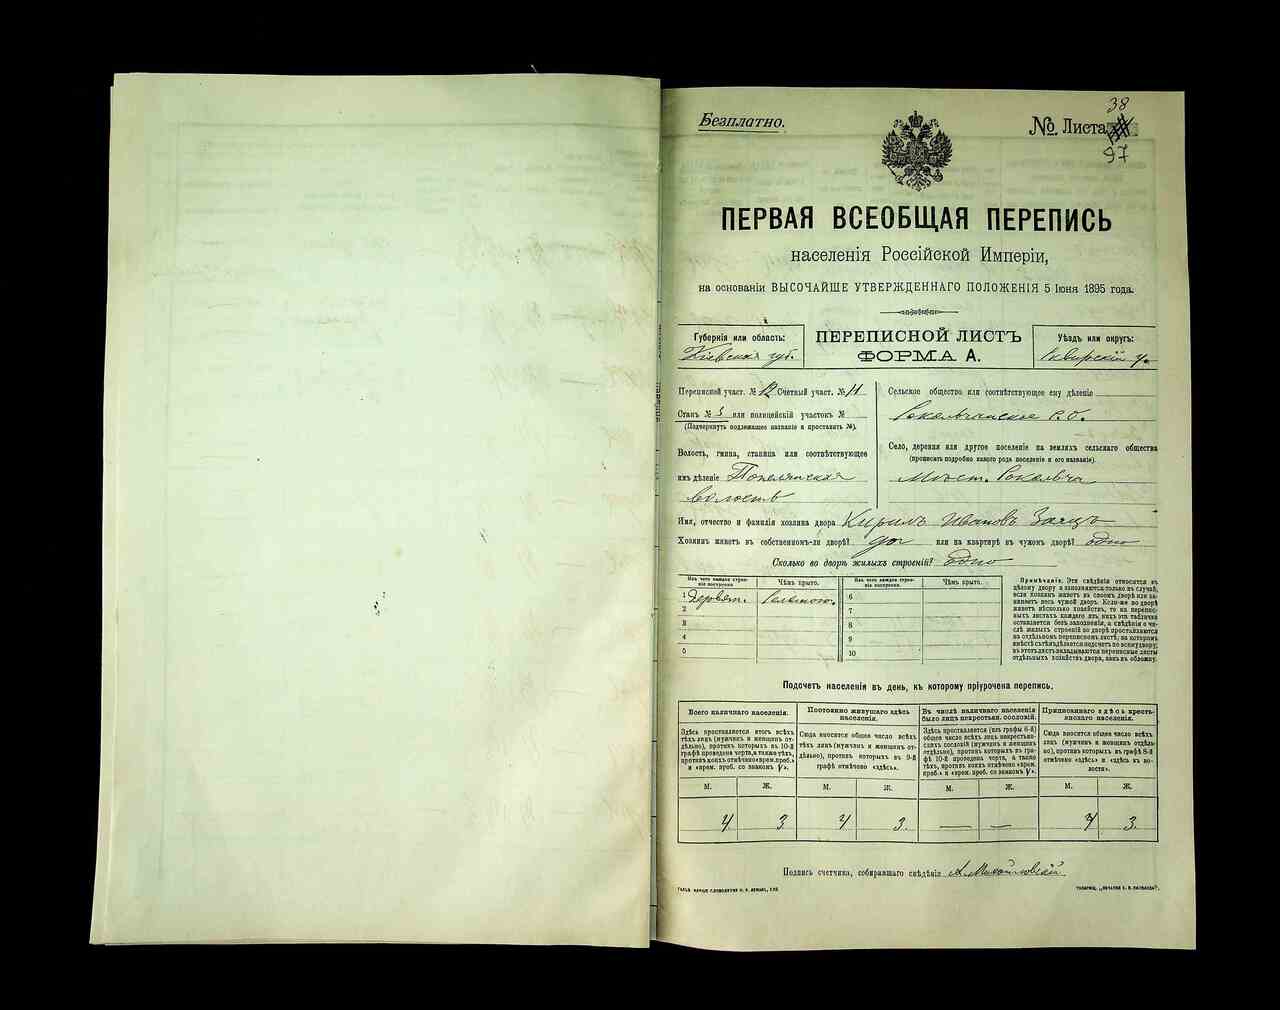 Безплатно.
№ Листа
38
97
ПЕРВАЯ ВСЕОБЩАЯ ПЕРЕПИСЬ
населенія Россійской Имперіи,
на основаніи ВЫСОЧАЙШЕ УТВЕРЖДЕННАГО ПОЛОЖЕНІЯ 5 Іюня 1895 года.
Губернія или область:
Кіевская губ.
ПЕРЕПИСНОЙ ЛИСТЪ
ФОРМА А.
Уѣздъ или округъ:
Сквирскій у.
Переписной участ. № 12 Счетный участ. № 11
Станъ № 3 или полицейскій участокъ №
(Подчеркнуть подлежащее названіе и проставить №).
Волость, гмина, станица или соотвѣтствующее
имъ дѣленіе Попелянская
волость
Сельское общество или соотвѣтствующее ему дѣленіе
С. О.
Село, деревня или другое поселеніе на земляхъ сельскаго общества
(прописать подробно какого рода поселеніе и его названіе).
Мѣст.
Имя, отчество и фамилія хозяина двора Кирилъ Ивановъ Заяцъ
Хозяинъ живетъ въ собственномъ-ли дворѣ? да или на квартирѣ въ чужомъ дворѣ?
Сколько во дворѣ жилыхъ строеній? одно
Изъ чего каждое строеніе построено.
Чѣмъ крыто.
Изъ чего каждое строеніе построено.
Чѣмъ крыто.
1 Деревян. Соломою.
2
3
4
5
6
7
8
9
10
Примѣчаніе. Эти свѣдѣнія относятся къ
цѣлому двору и заполняются только въ случаѣ,
если хозяинъ живетъ въ своемъ дворѣ или занимаетъ
весь чужой дворъ. Если-же во дворѣ
живетъ нѣсколько хозяйствъ, то на переписныхъ
листахъ каждаго изъ нихъ эта табличка
оставляется безъ заполненія, а свѣдѣнія о числѣ
жилыхъ строеній во дворѣ проставляются
на отдѣльномъ переписномъ листѣ, на которомъ
вмѣстѣ съ тѣмъ дѣлается подсчетъ по всему двору;
въ этотъ листъ вкладываются переписные листы
отдѣльныхъ хозяйствъ двора, какъ въ обложку.
Подсчетъ населенія въ день, къ которому пріурочена перепись.
Всего наличнаго населенія.
Постоянно живущаго здѣсь населенія.
Въ числѣ наличнаго населенія было лицъ некрестьян. сословій:
Приписаннаго здѣсь крестьянскаго населенія.
Здѣсь проставляется итогъ всѣхъ
тѣхъ лицъ (мужчинъ и женщинъ отдѣльно),
противъ которыхъ въ 10-й
графѣ проведена черта, а также тѣхъ,
противъ коихъ отмѣчено «врем. проб.»
и «врем. проб. со знакомъ V».
Сюда вносится общее число всѣхъ
тѣхъ лицъ (мужчинъ и женщинъ отдѣльно),
противъ которыхъ въ 9-й
графѣ отмѣчено «здѣсь».
Здѣсь проставляется (изъ графы 6-й)
общее число всѣхъ лицъ некрестьянскихъ
сословій (мужчинъ и женщинъ
отдѣльно), противъ которыхъ въ графѣ
10-й проведена черта, а также
тѣхъ, противъ коихъ отмѣчено «врем.
проб.» и «врем. проб. со знакомъ V».
Сюда вносится общее число всѣхъ
лицъ (мужчинъ и женщинъ отдѣльно),
противъ которыхъ въ графѣ 8-й
отмѣчено «здѣсь» и «здѣсь къ волости».
М. Ж. М. Ж. М. Ж. М. Ж.
4 3. 4 3. — — 4 3.
Подпись счетчика, собиравшаго свѣдѣнія А. Михайловскій